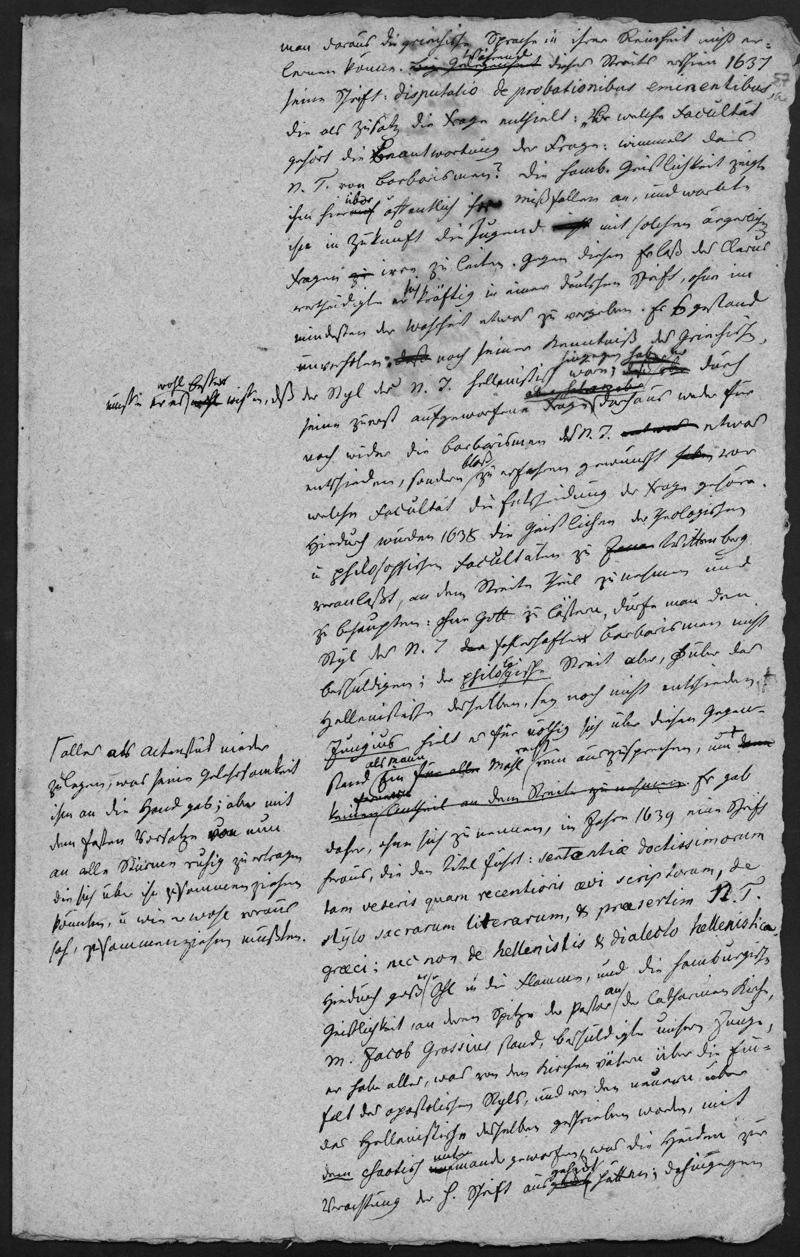 man daraus die griechische Sprache in ihrer Reinheit nicht er-
lernen könne. Während dieses Streits erschien 1637
57
seine Schrift: disputatio de probationibus eminentibus,
die als Zusatz die Frage enthielt: Vor welche Facultät
gehört die Beantwortung der Frage: wimmelt das
N. T. von Barbarismen? Die hamb. Geistlichkeit zeigte
ihm hierüber öffentlich ihr Mißfallen an, und warnte
ihn in Zukunft die Jugend mit solchen ärgerlichen
Fragen irre zu leiten. Gegen diesen Erlaß des Clerus
vertheidigte er sich kräftig in einer deutschen Schrift, ohne im
mindesten der Wahrheit etwas zu vergeben. Er gestand
unverholen: nach seiner Kenntniß des Griechischen,
müssen er es wohl besser wissen, daß der Styl des N. T. hellenistisch
seine zuerst aufgeworfene Frage durchaus weder für
noch wider die Barbarismen des N. T. etwas
entschieden, sondern blos zu erfahren gewünscht vor
welche Facultät die Entscheidung der Frage gehöre.
Hiedurch wurden 1638 die Geistlichen der theologischen
u philosophischen Facultäten zu Wittenberg
veranlaßt, an dem Streite Theil zu nehmen und
zu behaupten: ohne Gott zu lästern, dürfe man den
Styl des N. T. fehlerhafter Barbarismen nicht
beschuldigen; der philologische Streit aber, über das
Hellenistische desselben, sey noch nicht entschieden.
Jungius hielt es für nöthig sich über diesen Gegen-
stand auszusprechen, um
Er gab
daher, ohne sich zu nennen, im Jahre 1639 eine Schrift
heraus, die den Titel führt: sententiæ doctissimorum
tam veteris quam recentioris ævi scriptorum, de
stylo sacrarum literarum, & præsertim N. T.
græci; nec non de hellenistis & dialecto hellenistica.
Hiedurch goß er Öhl in die Flammen, und die hamburgische
Geistlichkeit, an deren Spitze der Pastor an der Catharinen Kirche,
M. Jacob Grossius stand, beschuldigte unsern Junge,
er habe alles, was von den Kirchenvätern über die Ein-
falt des apostolischen Styls, und von den neuern über
das Hellenistische desselben geschrieben worden, mit
dem chaotisch unter einander geworfen, was die Heiden zur
Verachtung der H. Schrift hätten; dahingegen
alles als Actenstück nieder
zulegen, was seine Gelehrsamkeit
ihm an die Hand gab; aber mit
dem festen Vorsatze von nun
an alle Stürme ruhig zu ertragen
die sich über ihn zusammenziehen
könnten, u wie er wohl voraus
sah, zusammenziehen mußten.